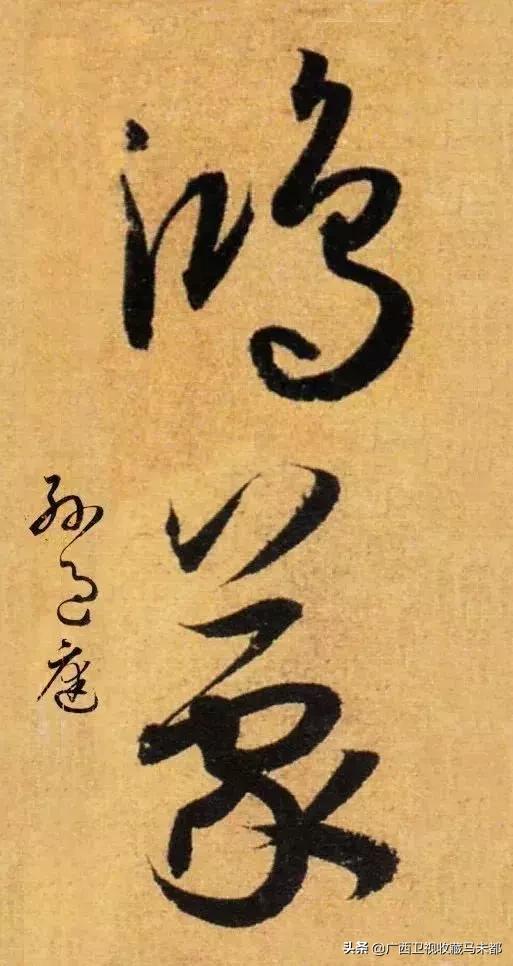 鸿蒙
孙过庭
头条 @广西卫视收藏马未都